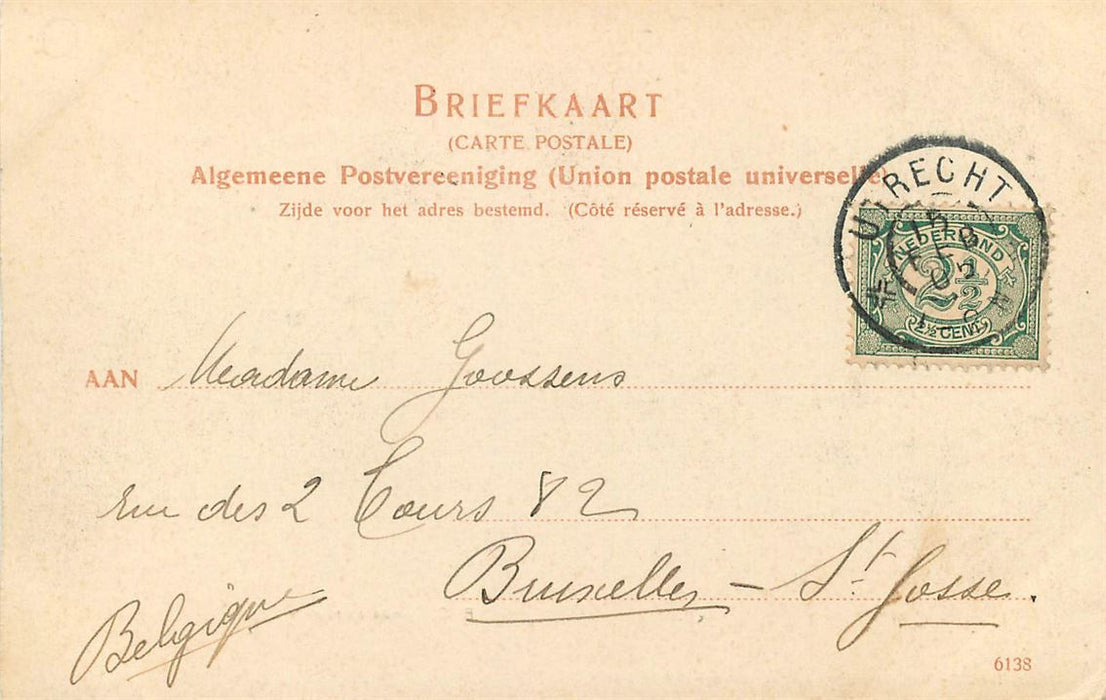 BRIEFKAART
(CARTE POSTALE)
Algemeene Postvereeniging (Union postale universelle)
Zijde voor het adres bestemd. (Côté réservé à l'adresse.)
UTRECHT
15
FEB
02
NEDERLAND
2½
2½ CENT
AAN Madame Goossens
rue des 2 Tours 82
Bruxelles – St Josse.
Belgique
6138